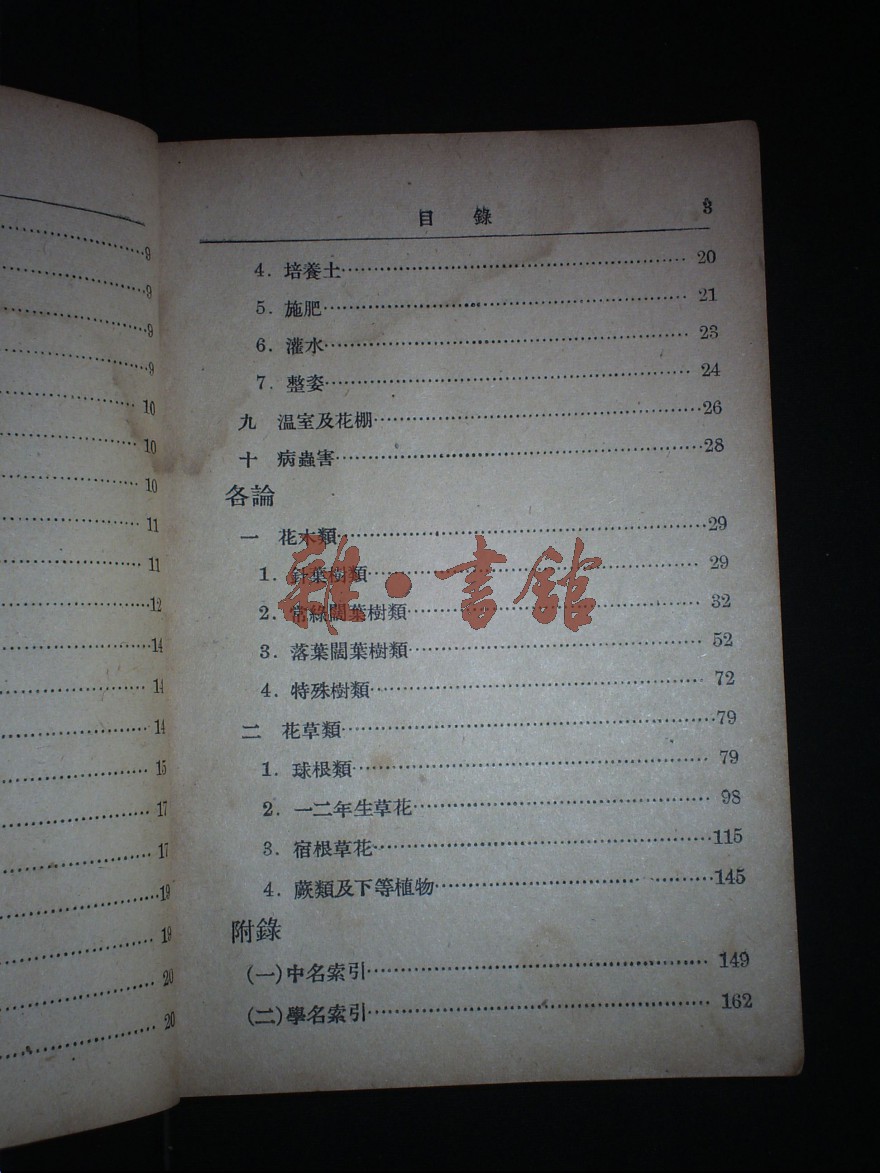 9
9
9
9
10
10
10
11
11
12
14
14
14
15
17
17
19
19
20
20
目 錄 3
4. 培養土 20
5. 施肥 21
6. 灌水 23
7. 整姿 24
九 溫室及花棚 26
十 病蟲害 28
各論
一 花木類 29
1. 針葉樹類 29
2. 常綠闊葉樹類 32
3. 落葉闊葉樹類 52
4. 特殊樹類 72
二 花草類 79
1. 球根類 79
2. 一二年生草花 98
3. 宿根草花 115
4. 蕨類及下等植物 145
附錄
(一)中名索引 149
(二)學名索引 162
雜·書館